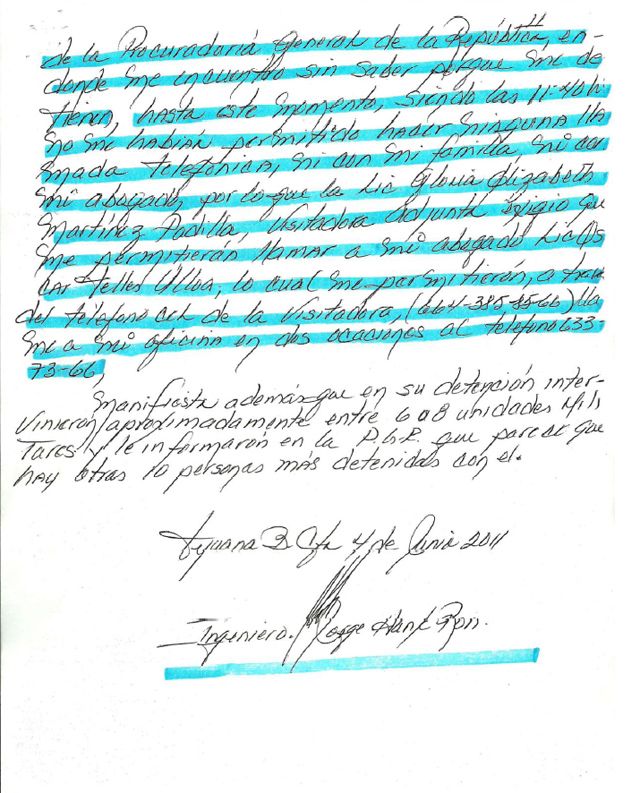 de la Procuradoria General de la República", en-
donde me encuentro sin saber porque me de
tienen, hasta este momento, siendo las 11:40 h
no me habían permitido hacer ninguna lla
mada telefonica, ni con mi familia, ni con
mi abogado, por lo que la Lic Gloria Elizabeth
Martínez Padilla, Visitadora adjunta exigio que
me permitieran llamar a mi abogado Lic Os
car Telles Ulloa, lo cual me permitierón, a trav
del teléfono cel de la Visitadora, (664-385-85-66) lla
me a mi oficina en dos ocaciones al telefono 633-
73-66,
Manifiesta además que en su detención inter-
vinieron aproximadamente entre 6 o 8 unidades Mili
Tares y le informarón en la P.G.R. que parece que
hay otras 10 personas más detenidas con el.
Tijuana B. Cfa 4 de Junio 2011
Ingeniero. Jorge Hank Ron.